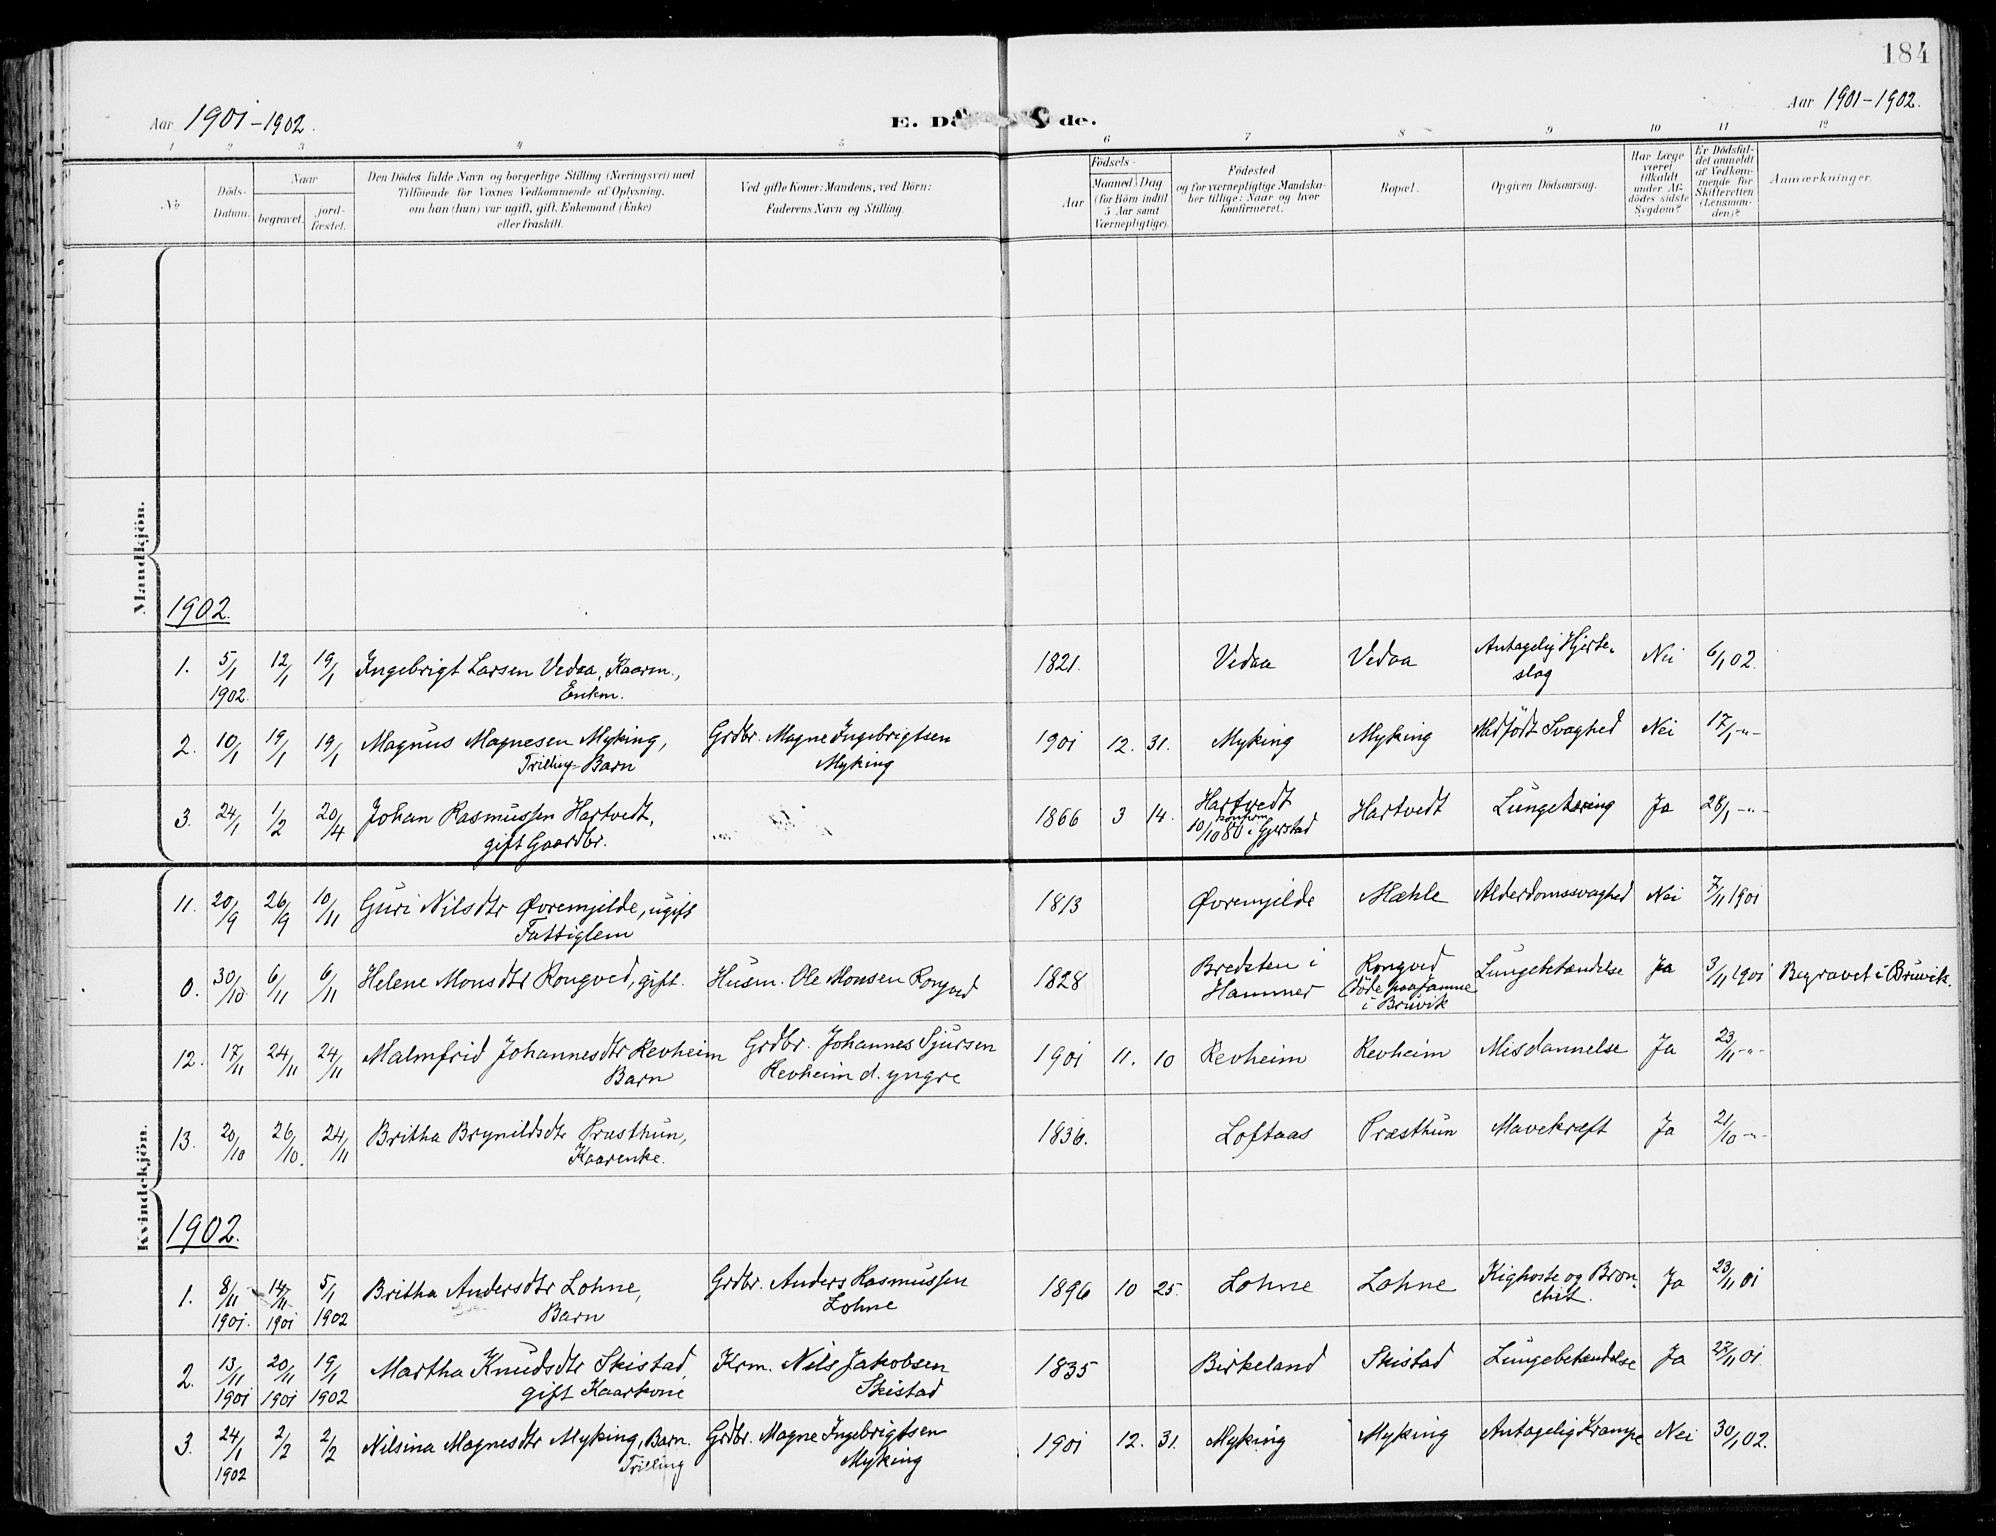 184
Aar 1901-1902.
E. Dö de.
Aar 1901-1902.
1 2 3 4 5 6 7 8 9 10 11 12
No
Döds-Datum.
Naar
begravet.
jord-fæstet.
Den Dödes fulde Navn og borgerlige Stilling (Næringsvei) med
Tilföiende for Voxnes Vedkommende af Oplysning,
om han (hun) var ugift, gift, Enkemand (Enke)
eller fraskilt.
Ved gifte Koner: Mandens, ved Börn:
Faderens Navn og Stilling.
Födsels-
Aar
Maaned. Dag
(for Börn indtil
5 Aar samt
Værnepligtige).
Födested
og for værnepligtige Mandska-
ber tillige: Naar og hvor
konfirmeret.
Bopæl.
Opgiven Dödsaarsag.
Har Læge
været
tilkaldt
under Af-
dödes sidste
Sygdom?
Er Dödsfal-
det anmeldt
af Vedkom-
mende for
Skifteretten
(Lensman-
den)?
Anmærkninger.
Mandkjön.
1902.
1. 5/1 1902. 12/1 19/1 Ingebrigt Larsen Vedaa, Kaarm., 1821. Vedaa Vedaa Antagelig Hjerte- Nei 6/1 02.
Enkm. slag
2. 10/1 19/1 19/1 Magnus Magnesen Myking, Grdbr. Magne Ingebrigtsen 1901 12. 31. Myking Myking Medfødt Svaghed Nei 17/1 -"-
Trilling-Barn Myking
3. 24/1 1/2 20/4 Johan Rasmussen Hartvedt, 1866 3 14. Hartvedt Hartvedt Lungetæring Ja 28/1 -"-
gift Gaardbr. konfirm. 10/10 80 i Gjerstad
Kvindekjön.
11. 20/9 26/9 10/11 Guri Nilsdtr Øvremjelde, ugift 1813 Øvremjelde Mæhle Alderdomssvaghed Nei 7/11 1901
Fattiglem
0. 30/10 6/11 6/11 Helene Monsdtr Rongved, gift. Husm. Ole Monsen Rongved 1828 Bredsten i Rongved Lungebetændelse Ja 3/11 1901 Begravet i Bruvik.
Hammer døde paa Jamne i Bruvik
12. 17/11 24/11 24/11 Malmfrid Johannesdtr Revheim Grdbr. Johannes Sjursen 1901 11. 10 Revheim Revheim Misdannelse Ja 23/11 -"-
Barn Revheim d. yngre
13. 20/10 26/10. 24/11 Britha Brynildsdtr Præsthun, 1836. Loftaas Præsthun Mavekræft Ja 21/10 -"-
Kaarenke.
1902.
1. 8/11 1901. 14/11 1901 5/1 1902 Britha Andersdtr Lohne, Grdbr. Anders Rasmussen 1896 10 25. Lohne Lohne Kighoste og Bron- Ja 23/11 01
Barn Lohne chit.
2. 13/11 1901 20/11 1901 19/1 1902 Martha Knudsdtr Skistad, Krm. Nils Jakobsen 1835 Birkeland Skistad Lungebetændelse Ja 27/11 01.
gift Kaarkone Skistad
3. 24/1 1902 2/2 2/2 Nilsina Magnesdtr Myking, Barn. Grdbr. Magne Ingebrigtsen 1901 12. 31. Myking Myking Antagelig Krampe Nei 30/1 02.
Trilling Myking